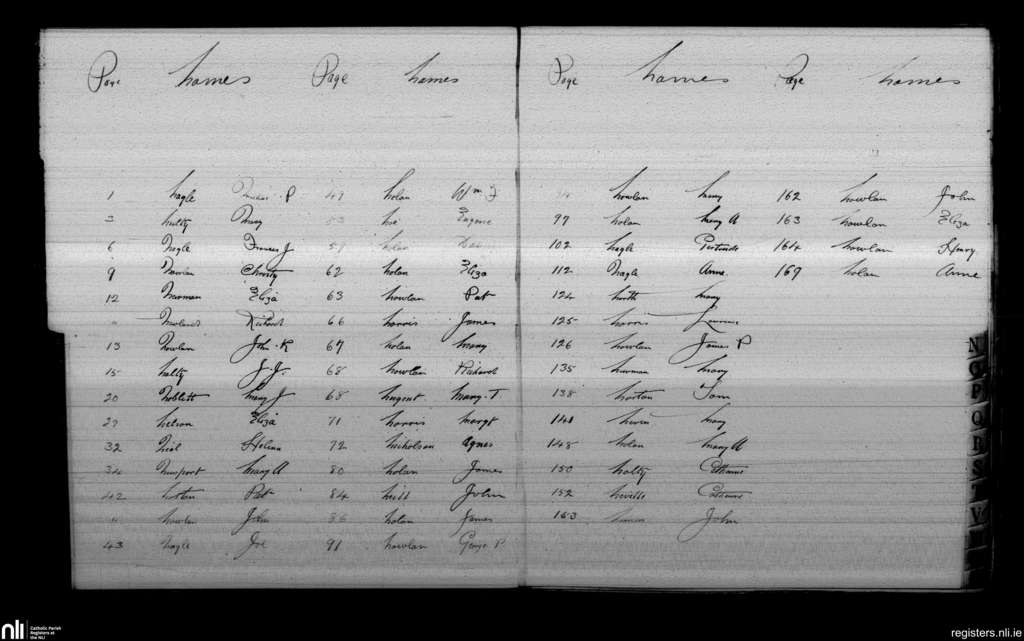 Page Names Page Names Page Names Page Names
1 Nagle P 47 Nolan Wm J Nowlan Mary 162 Nowlan John
3 Nulty Mary 53 Noé Eugene 97 Nolan Mary A 163 Nowlan Eliza
6 Nagle Francis J 102 Nagle Gertrude 164 Nowlan Henry
9 Christy 62 Nolan Eliza 112 Nagle Anne 167 Nolan Anne
12 Newman Eliza 63 Nowlan Pat 124 North Mary
" Richard 66 Norris James 125 Norris Laurence
13 Nowlan John K 67 Nolan Mary 126 Nowlan James P
15 Nalty J.J. 68 Nowlan Richard 135 Newman Mary
20 Noblett Mary J 68 Nugent Mary T 138 Norton Tom
27 Nelson Eliza 71 Norris Margt 141 Niven Mary
32 Neal Helena 72 Nicholson Agnes 148 Nolan Mary A
34 Newport Mary A 80 Nolan James 150 Nalty Catherine
42 Norton Pat 84 Neill John 152 Neville Catherine
" Nowlan John 86 Nolan James 153 John
43 Nagle Joe 91 Nowlan George P
N
O
P
Q
R
S
T
V
nli
Catholic Parish
Registers at
the NLI
registers.nli.ie